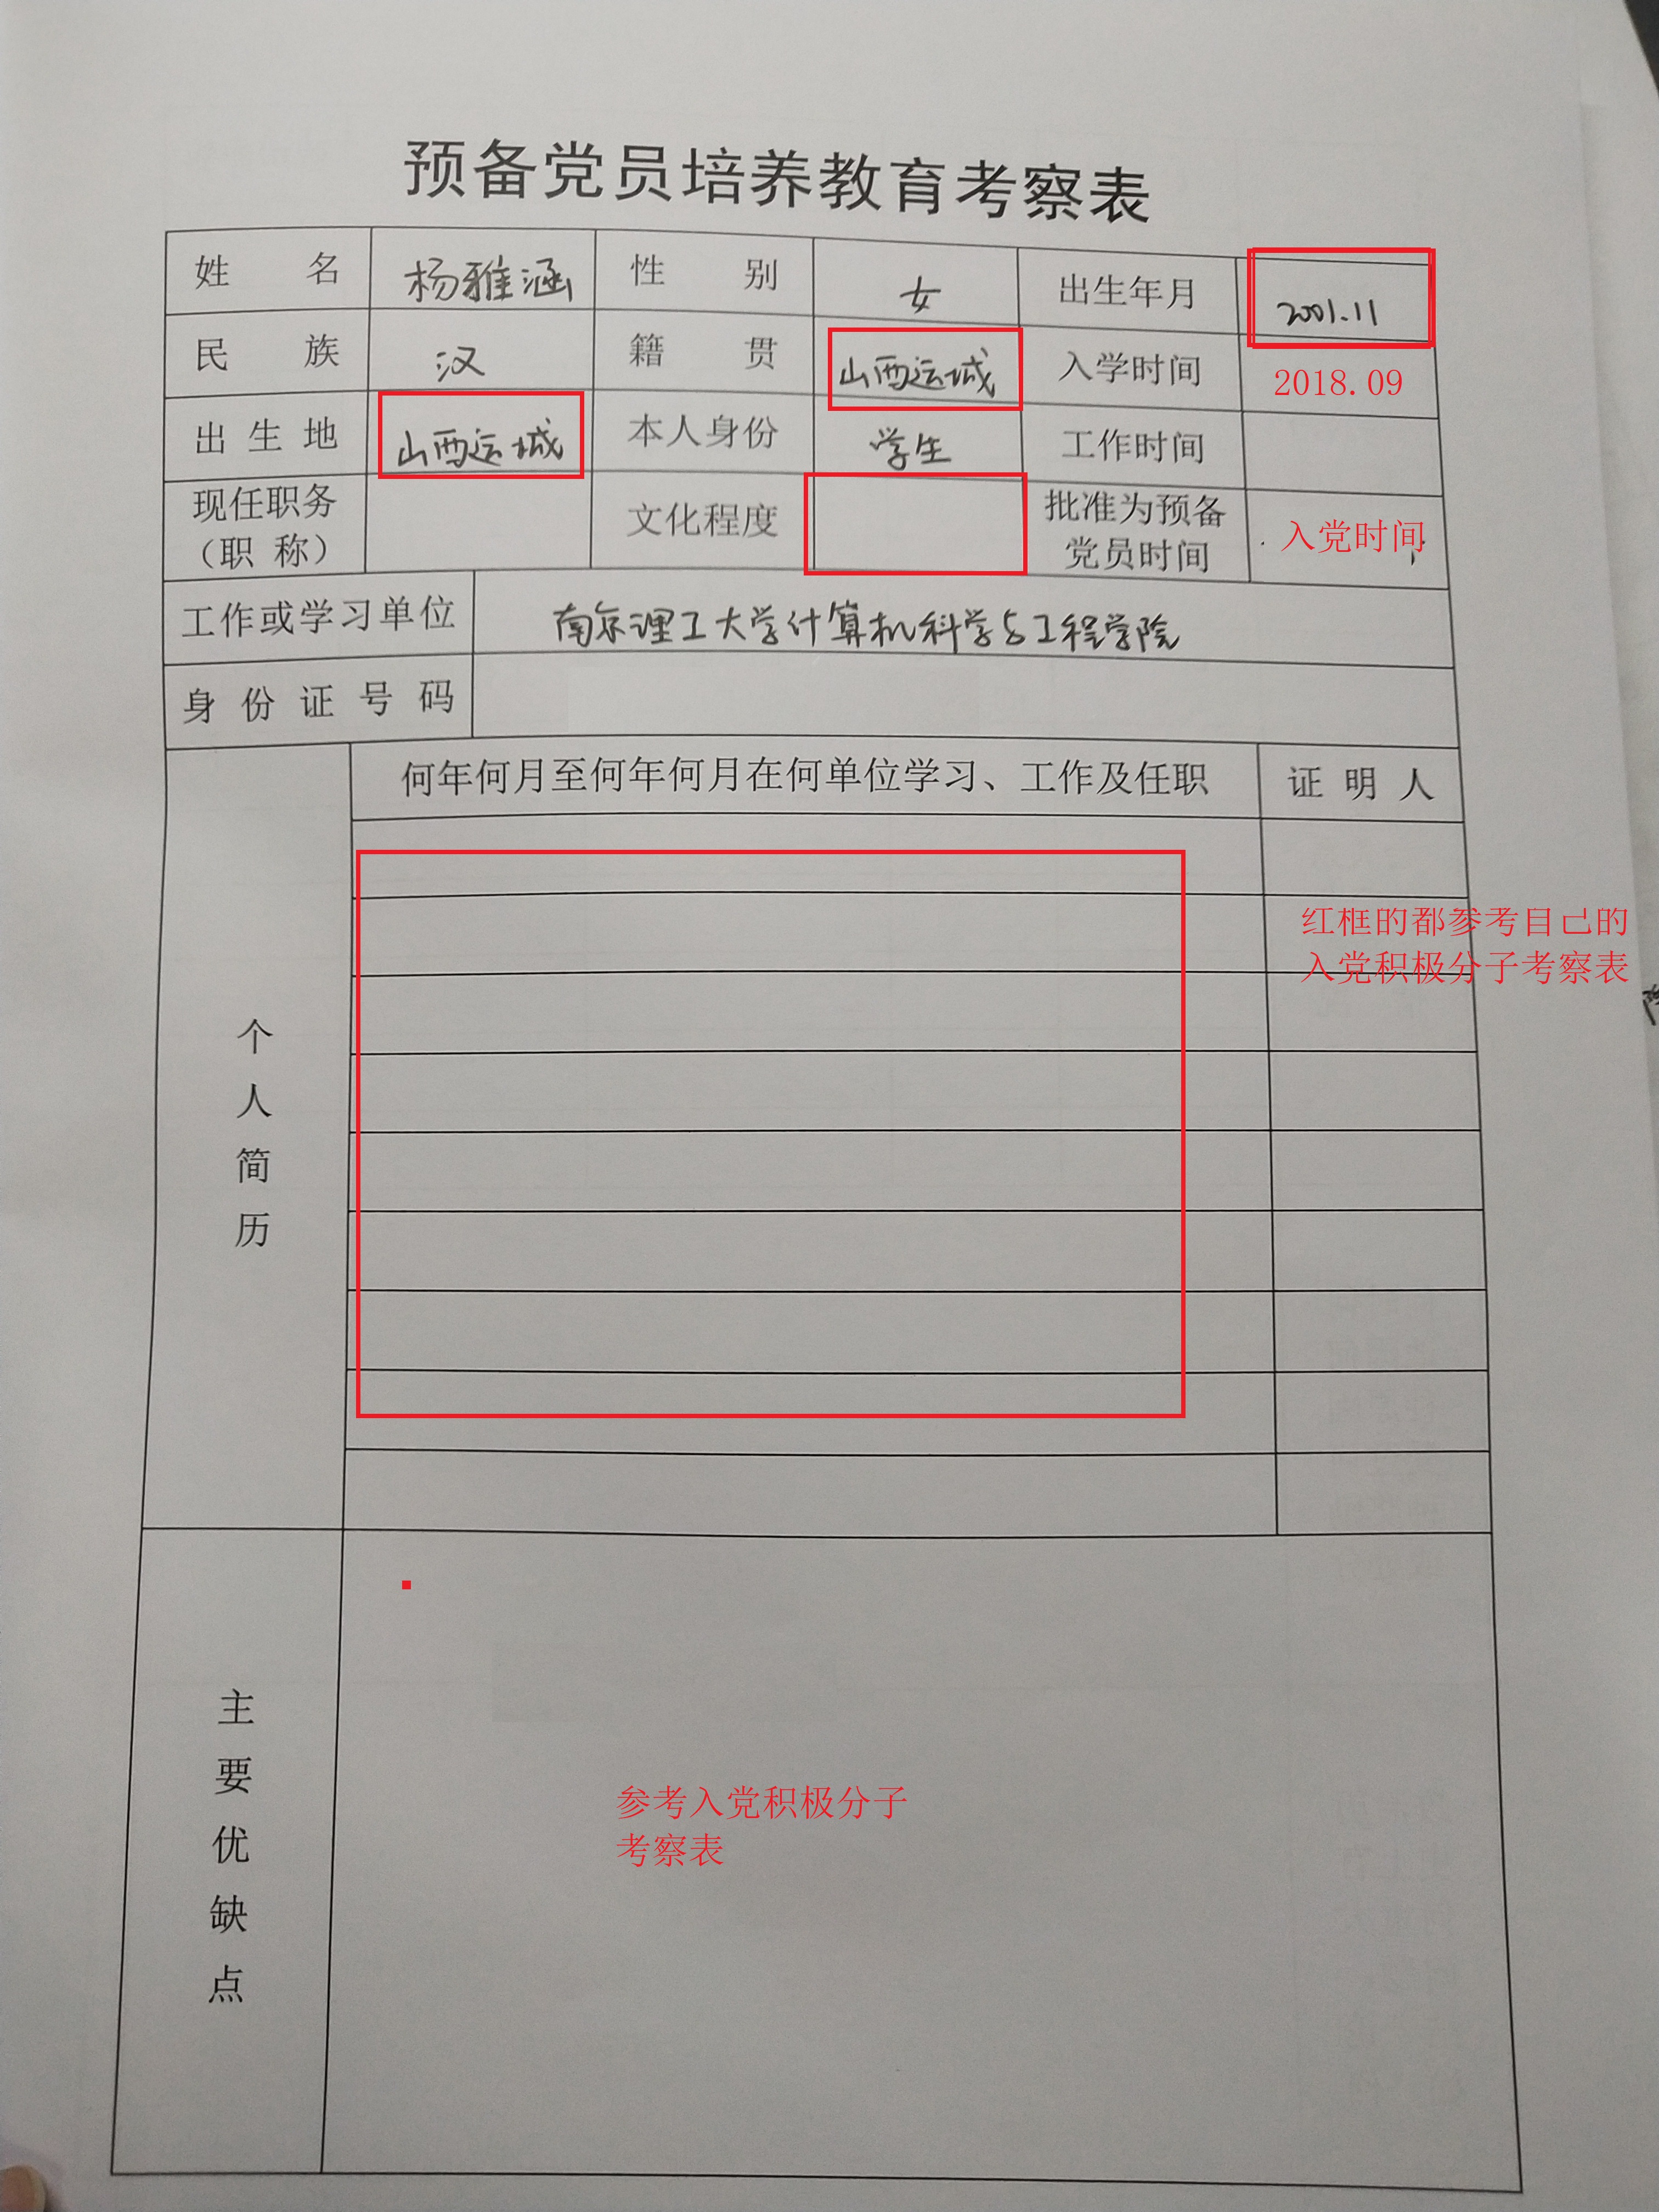 预备党员培养教育考察表
姓 名 杨雅涵 性 别 女 出生年月 2001.11
民 族 汉 籍 贯 山西运城 入学时间 2018.09
出 生 地 山西运城 本人身份 学生 工作时间
现任职务 文化程度 批准为预备 入党时间
（职 称） 党员时间
工作或学习单位 南京理工大学计算机科学与工程学院
身 份 证 号 码
何年何月至何年何月在何单位学习、工作及任职 证 明 人
红框的都参考自己的
入党积极分子考察表
个
人
简
历
参考入党积极分子
考察表
主
要
优
缺
点